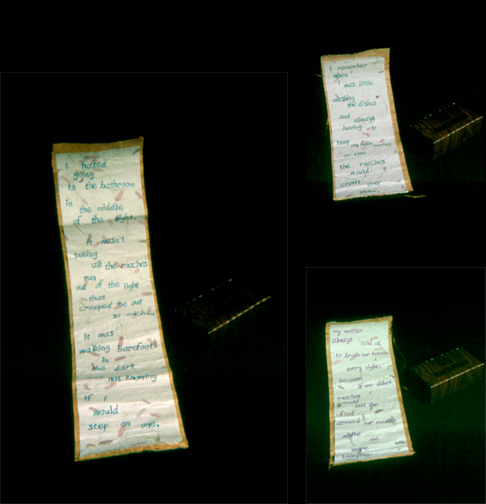 I hated
going
to the bathroom
in the middle
of the night.
it wasn't
seeing
all the roaches
run
out of the light
that
creeped me out
so much
It was
walking barefoot
in
the dark
not knowing
if I
would
step on one.
I remember
when
I was little
washing
the dishes
and always
having to
keep my
the roaches
would
my mother
always told us
to brush our teeth
every night.
because
if we didn't
roaches
would
around our mouths